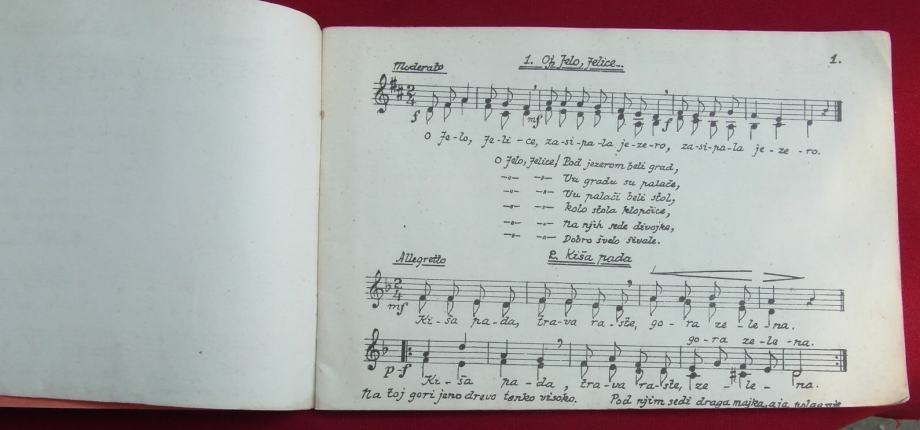 1. Oj Jelo, Jelice... 1.
Moderato
f mf f
O Je-lo, Je-li-ce, za-si-pa-la je-ze-ro, za-si-pa-la je-ze-ro.
O Jelo, Jelice! Pod jezerom beli grad,
-"- -"- Vu gradu su palače,
-"- -"- Vu palači beli stol,
-"- -"- kolo stola klopčice,
-"- -"- na njih sede divojke,
-"- -"- Dobro švelo šivale.
Allegretto 2. Kiša pada
mf
Ki-ša pa-da, tra-va ra-ste, go-ra ze-le-na.
go-ra ze-le-na.
p-f
Ki-ša pa-da, tra-va ra-ste, ze-le-na.
Na toj gori jeno drevo tenko visoko. Pod njim sedi draga majka,